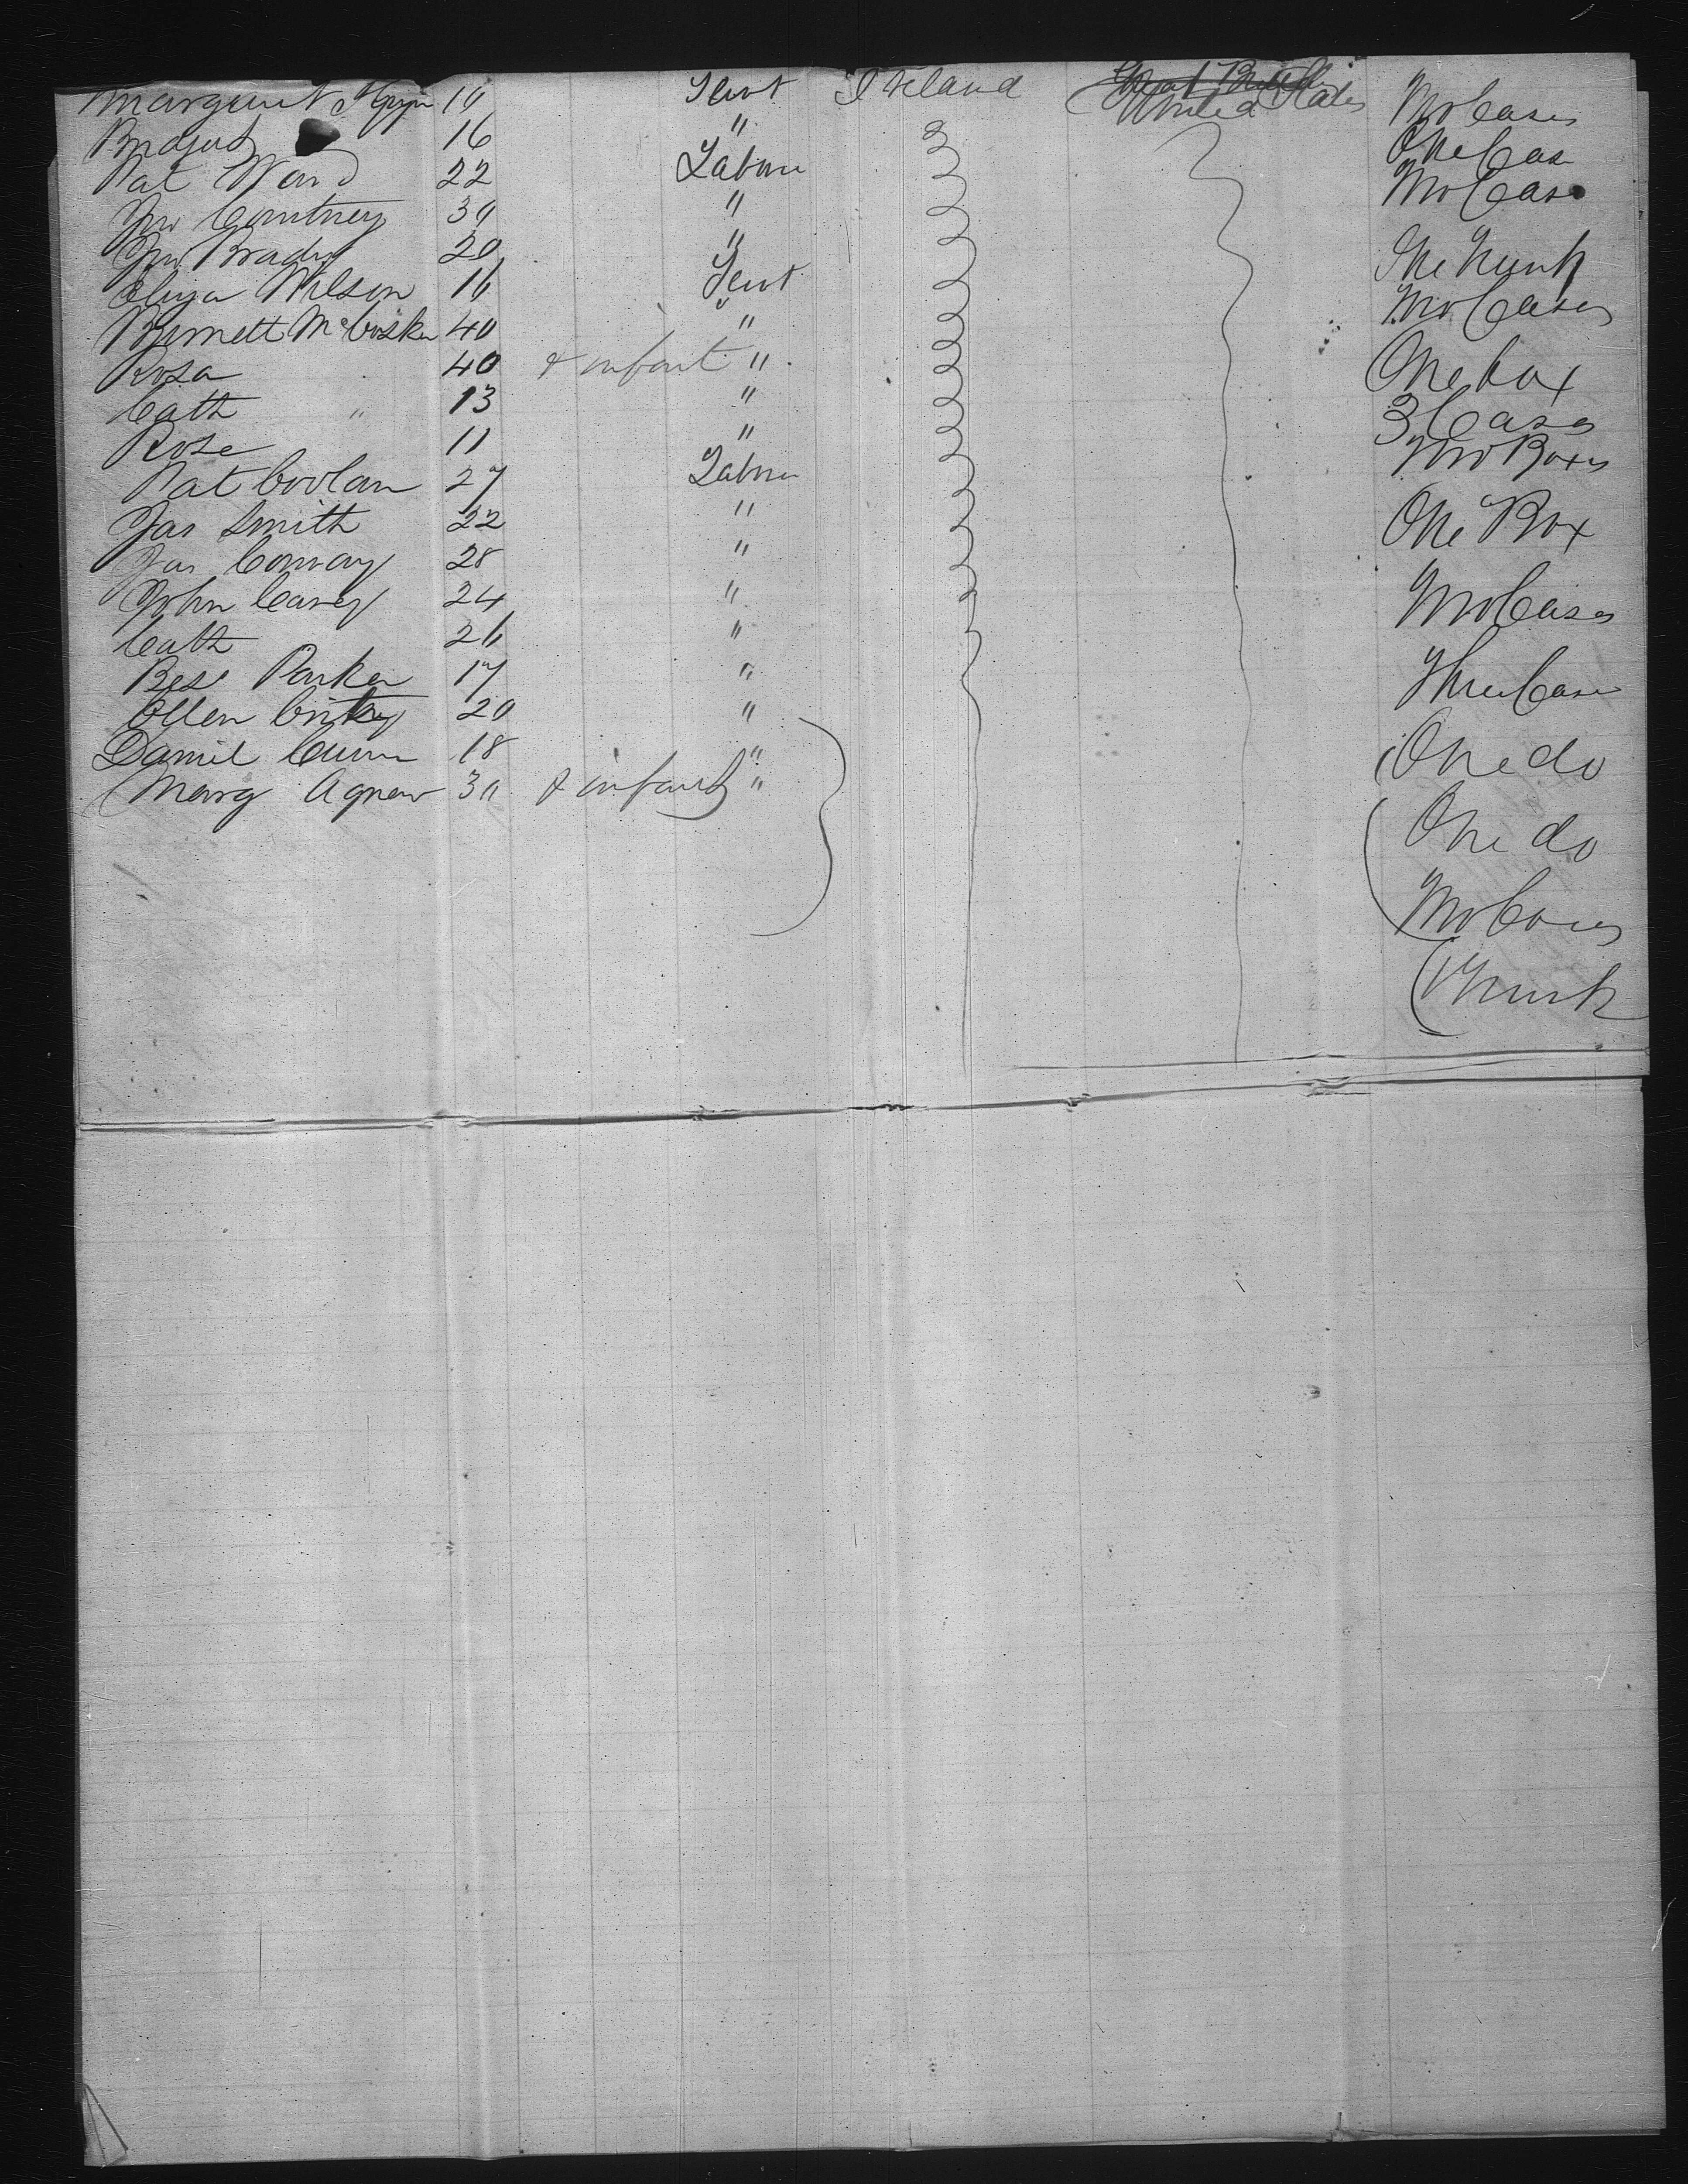 Margaret 16 Sevt Ireland United States Two Cases
Bridget 16 " One Case
Pat Ward 22 Labour Two Case
Jno Courtney 30 "
Jno Brady 20 " One Trunk
Eliza Wilson 16 Sevt Two Cases
Bernett McCosker 40 "
Rosa 40 & infant " One box
Cath " 13 " 3 Cases
Rose 11 " Two Boxes
Pat Coolan 27 Labour
Jas Smith 22 " One Box
Jas Conway 28 "
John Carey 24 " Two Cases
Cath 26 "
Bess Parker 17 " Three Cases
Ellen 20 "
Daniel 18 " One do
Marg Agnew 30 & infant " One do
Two Boxes
1 Trunk